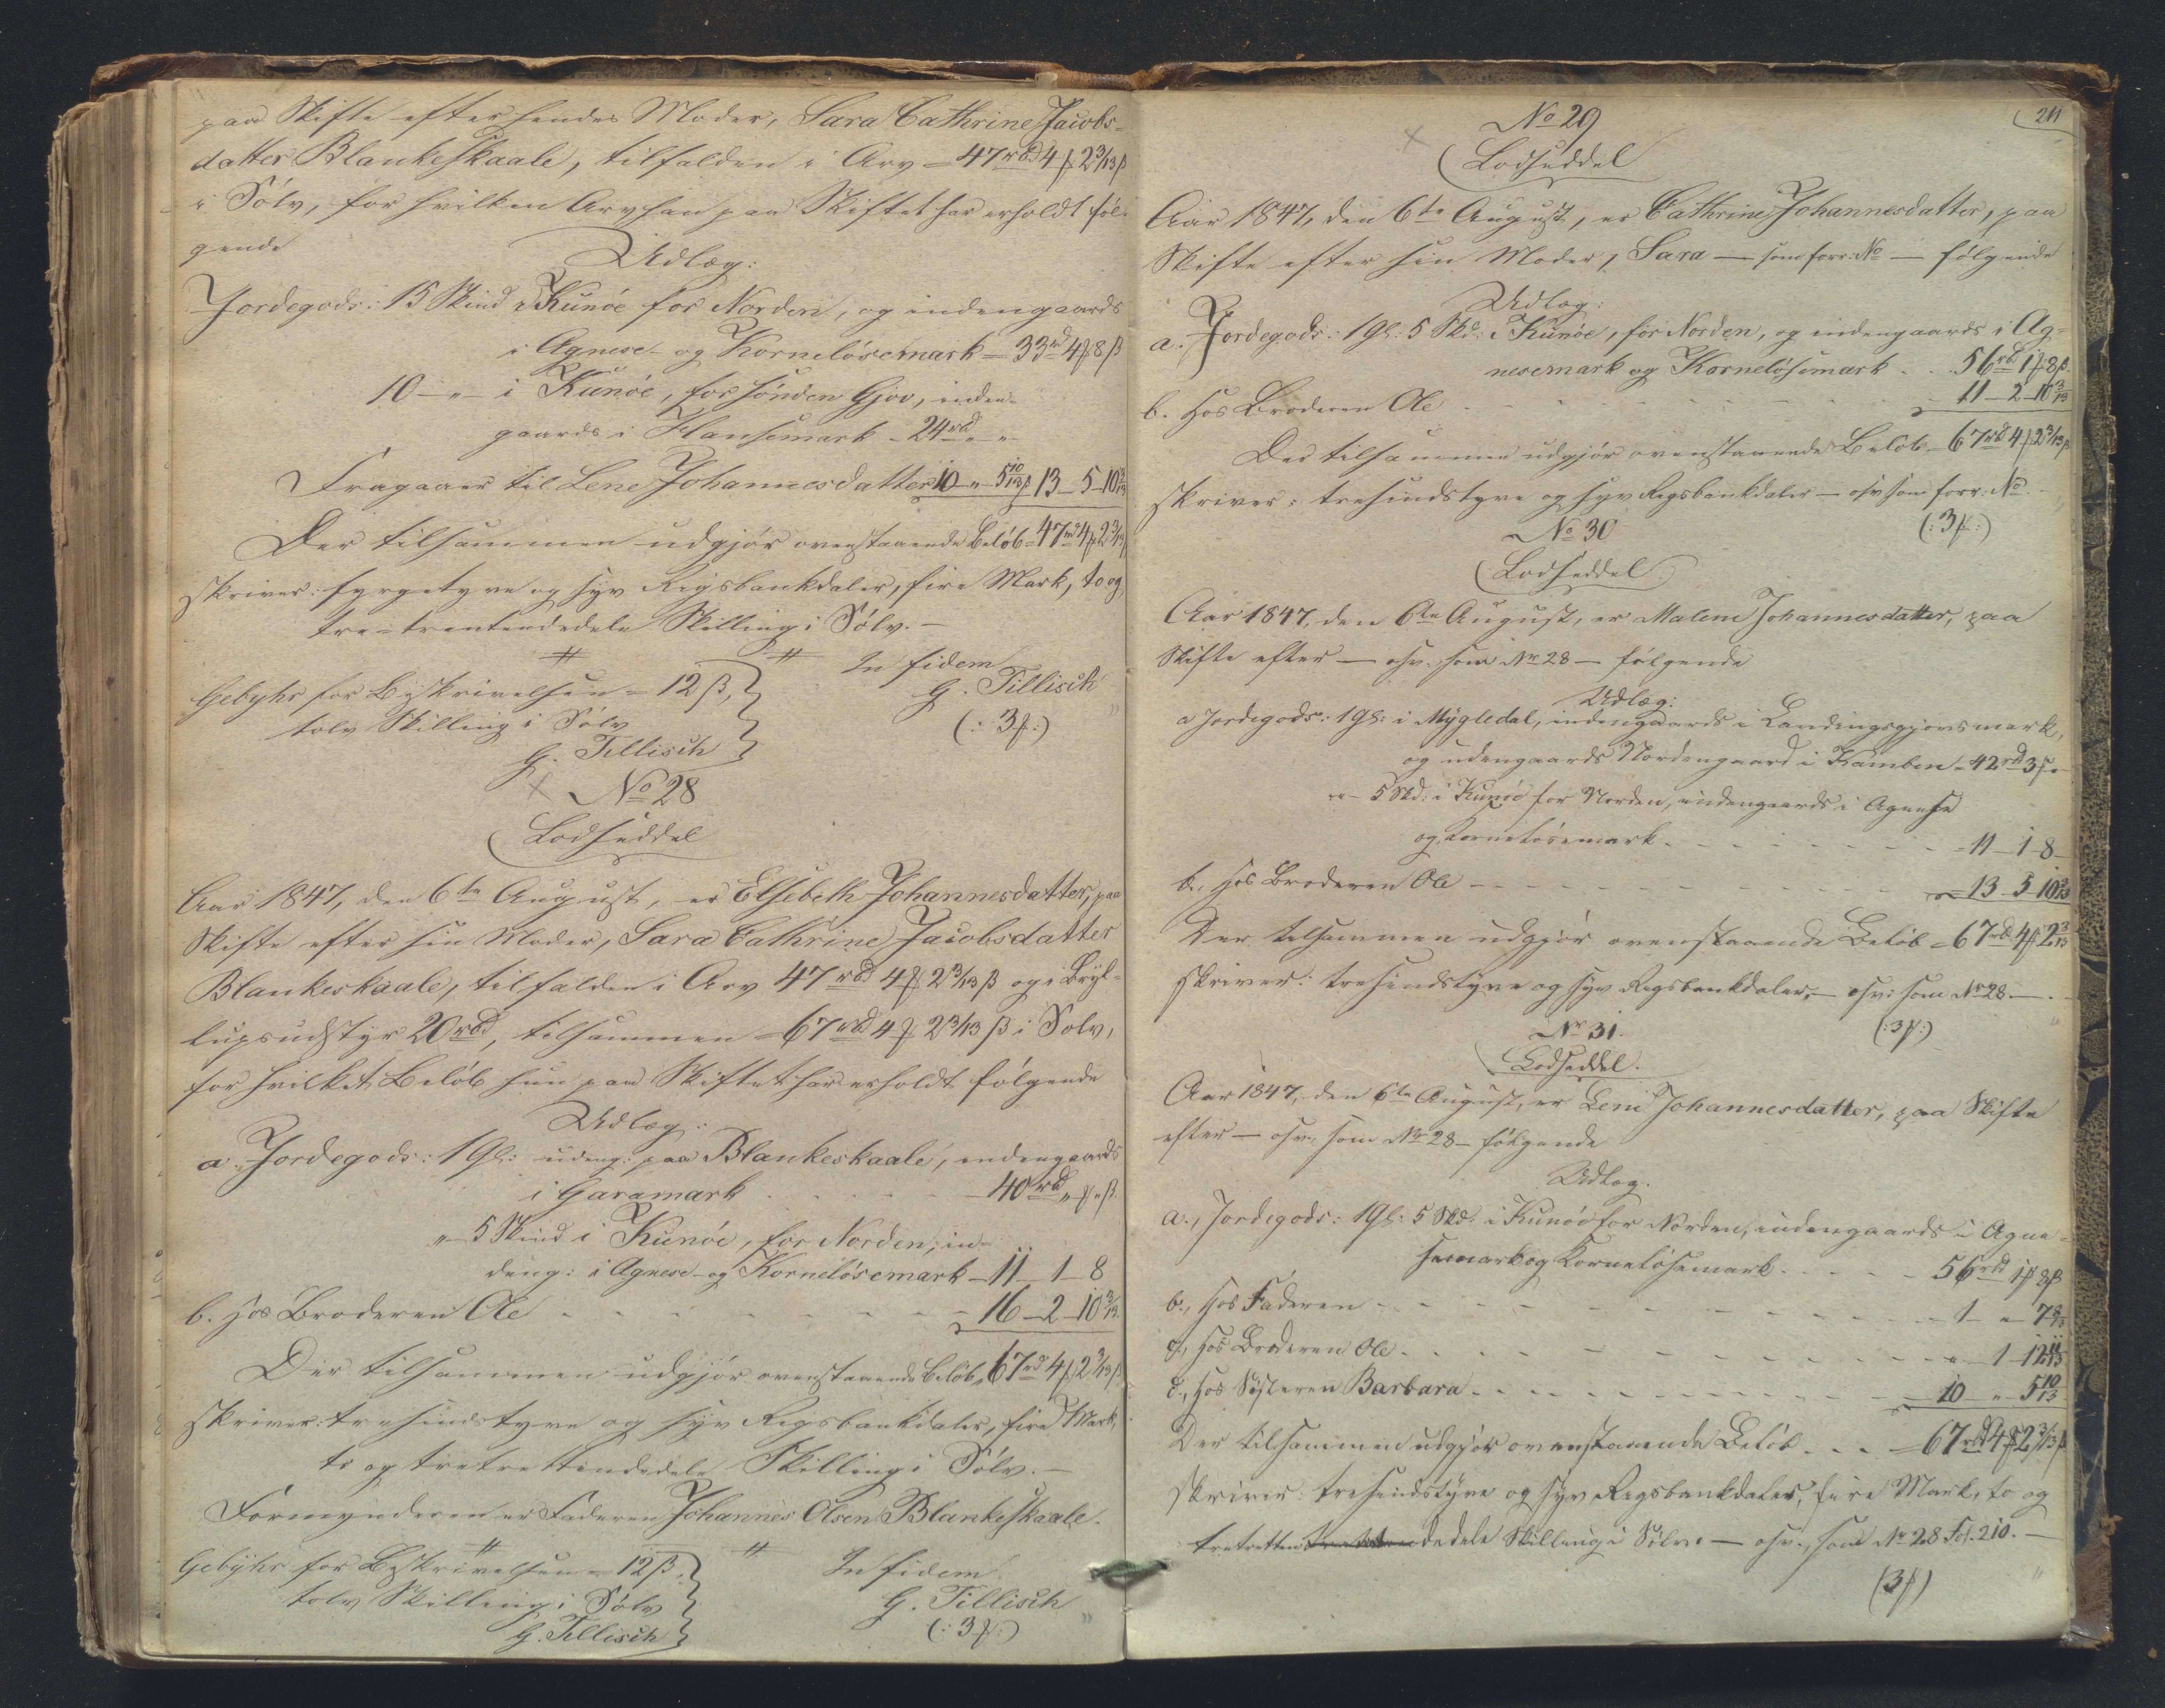 paa Skifte efter hendes Moder, Sara Cathrine Jacobs-
datter Blankeskaale, tilfalden i Arv = 47 rbd 4 ₰ 2 3/13 β
i Sölv, for hvilken Arv han paa Skiftet har erholdt föl-
gende
Udlæg:
Jordegods: 15 Skind i Kunöe for Norden, og indengaards
i Agnese- og Kornelösemark = 33 rbd 4 ₰ 8 β
10 - „ - i Kunöe, for sönden Gjov, inden-
gaards i Hansemark - 24 rbd „ - „
Fragaaer til Lene Johannesdatter 10 - „ - 5 10/13 β 13 - 5 - 10 3/13
Der tilsammen udgjör ovenstaaende Belöb = 47 rbd 4 ₰ 2 3/13
skriver: fyrgetyve og syv Rigsbankdaler, fire Mark, to og
tre-trettendedele Skilling i Sölv. -
Gebyhr for Beskrivelsen = 12 β,
tolv Skilling i Sölv
G. Tillisch
In fidem
G. Tillisch
(: 3 ₰ :)
No 28
Lodseddel
Aar 1847, den 6te August, er Elsebeth Johannesdatter, paa
Skifte efter sin Moder, Sara Cathrine Jacobsdatter
Blankeskaale, tilfalden i Arv 47 rbd 4 ₰ 2 3/13 β og i Bryl-
lupsudstyr 20 rbd, tilsammen = 67 rbd 4 ₰ 2 3/13 β i Sölv,
for hvilket Belöb hun paa Skiftet har erholdt fölgende
Udlæg:
a. Jordegods: 1 Gl: udeng: paa Blankeskaale, indengaards
i Garamark . . . . . 40 rbd „ ₰ „ β
„ - 5 Skind i Kunöe, for Norden, in-
deng: i Agnese- og Kornelösemark - 11 - 1 - 8
b. hos Broderen Ole - - - - - - 16 - 2 - 10 3/13
Der tilsammen udgjör ovenstaaende Belöb = 67 rbd 4 ₰ 2 3/13 β
skriver: tresindstyve og syv Rigsbankdaler, fire Mark,
to og tretrettendedele Skilling i Sölv. -
Formynderen er Faderen Johannes Olsen Blankeskaale.
Gebyhr for Beskrivelsen = 12 β,
tolv Skilling i Sölv
G. Tillisch
In fidem
G. Tillisch
(: 3 ₰ :)
211
No 29
Lodseddel
Aar 1847, den 6te August, er Cathrine Johannesdatter, paa
Skifte efter sin Moder, Sara — som forr: No — fölgende
Udlæg:
a. Jordegods: 1 Gl: 5 Skd: i Kunöe, for Norden, og indengaards i Ag-
nesemark og Kornelösemark . . 56 rbd 1 ₰ 8 β
b. hos Broderen Ole - - - - - - 11 - 2 - 10 3/13
Der tilsammen udgjör ovenstaaende Belöb - 67 rbd 4 ₰ 2 3/13 β
skriver: tresindstyve og syv Rigsbankdaler — osv som forr: No. -
(: 3 ₰ :)
No 30
Lodseddel
Aar 1847, den 6te August, er Malene Johannesdatter, paa
Skifte efter — osv. som No 28 — fölgende
Udlæg:
a Jordegods: 1 Gl: i Mygledal, indengaards i Landingsgjovsmark,
og udengaards Nordengaard i Kamben - 42 rbd 3 ₰ „
„ - 5 Skd: i Kunöe for Norden, indengaards i Agnese
og Kornelösemark - - - - - - 11 - 1 - 8
b., hos Broderen Ole - - - - - - 13 - 5 - 10 3/13
Der tilsammen udgjör ovenstaaende Belöb = 67 rbd 4 ₰ 2 3/13
skriver: tresindstyve og syv Rigsbankdaler, — osv: som No 28 —.
(: 3 ₰ :)
No 31.
Lodseddel.
Aar 1847, den 6te August, er Lene Johannesdatter, paa Skifte
efter — osv. som No 28 - fölgende
Udlæg.
a., Jordegods: 1 Gl: 5 Skd: i Kunöe for Norden, indengaards i Agne-
semark og Kornelösemark . . . . . 56 rbd 1 ₰ 8 β
b., hos Faderen - - - - - - 1 - „ - 7 8/13
c., hos Broderen Ole - - - - - - „ - 1 - 12 11/13
d., hos Sösteren Barbara - - - - - - 10 - „ - 5 10/13
Der tilsammen udgjör ovenstaaende Belöb . . . = 67 rbd 4 ₰ 2 3/13 β
skriver: tresindstyve og syv Rigsbankdaler, fire Mark, to og
tretrettendedele Skilling i Sölv. — osv., som No 28 Fol. 210. —
(3 ₰)